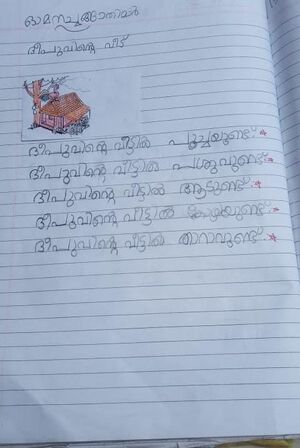 ഓമനച്ചങ്ങാതിമാർ
ദീപുവിന്റെ വീട്
ദീപുവിന്റെ വീട്ടിൽ പൂച്ചയുണ്ട്.
ദീപുവിന്റെ വീട്ടിൽ പശുവുണ്ട്.
ദീപുവിന്റെ വീട്ടിൽ ആടുണ്ട്.
ദീപുവിന്റെ വീട്ടിൽ കോഴിയുണ്ട്.
ദീപുവിന്റെ വീട്ടിൽ താറാവുണ്ട്.